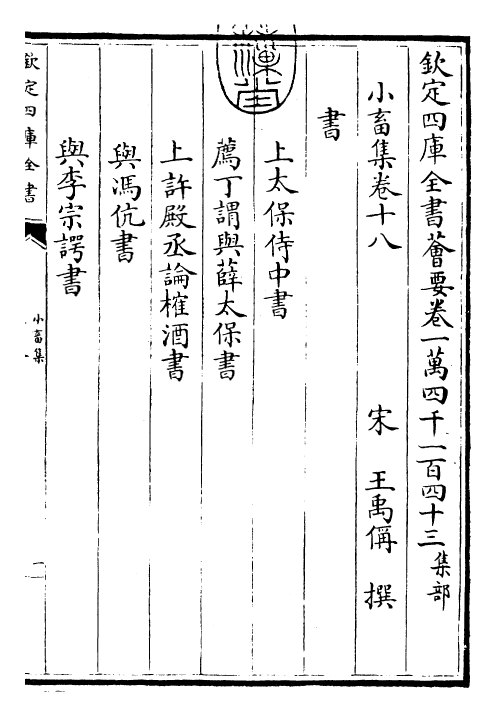 欽定四庫全書薈要卷一萬四千一百四十三 集部
小畜集卷十八
宋 王禹偁 撰
書
上太保侍中書
薦丁謂與薛太保書
上許殿丞論榷酒書
與馮伉書
與李宗諤書
欽定四庫全書
小畜集